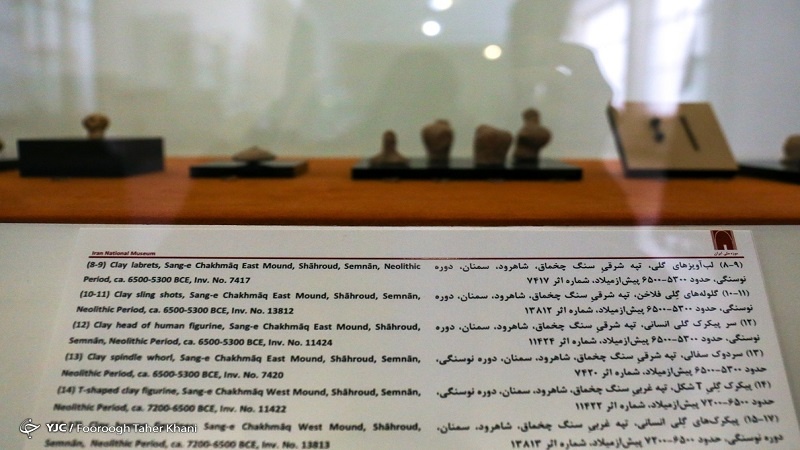 Iran National Museum
(8-9) Clay labrets, Sang-e Chakhmāq East Mound, Shāhroud, Semnān, Neolithic
Period, ca. 6500-5300 BCE, Inv. No. 7417
(10-11) Clay sling shots, Sang-e Chakhmāq East Mound, Shāhroud, Semnān,
Neolithic Period, ca. 6500-5300 BCE, Inv. No. 13812
(12) Clay head of human figurine, Sang-e Chakhmāq East Mound, Shāhroud,
Semnān, Neolithic Period, ca. 6500-5300 BCE, Inv. No. 11424
(13) Clay spindle whorl, Sang-e Chakhmāq East Mound, Shāhroud, Semnān,
Neolithic Period, ca. 6500-5300 BCE, Inv. No. 7420
(14) T-shaped clay figurine, Sang-e Chakhmāq West Mound, Shāhroud, Semnān,
Neolithic Period, ca. 7200-6500 BCE, Inv. No. 11422
Sang-e Chakhmāq West Mound, Shāhroud,
Semnān, Neolithic Period, ca. 7200-6500 BCE, Inv. No. 13813
موزه ملی ایران
(۸-۹) لب‌آویزهای گلی، تپه شرقیِ سنگ چخماق، شاهرود، سمنان، دوره
نوسنگی، حدود ۵۳۰۰-۶۵۰۰ پیش‌ازمیلاد، شماره اثر ۷۴۱۷
(۱۰-۱۱) گلوله‌های گِلی فلاخن، تپه شرقیِ سنگ چخماق، شاهرود، سمنان، دوره
نوسنگی، حدود ۵۳۰۰-۶۵۰۰ پیش‌ازمیلاد، شماره اثر ۱۳۸۱۲
(۱۲) سر پیکرک گلی انسانی، تپه شرقیِ سنگ چخماق، شاهرود، سمنان، دوره
نوسنگی، حدود ۵۳۰۰-۶۵۰۰ پیش‌ازمیلاد، شماره اثر ۱۱۴۲۴
(۱۳) سردوک سفالی، تپه شرقیِ سنگ چخماق، شاهرود، سمنان، دوره نوسنگی،
حدود ۵۳۰۰-۶۵۰۰ پیش‌ازمیلاد، شماره اثر ۷۴۲۰
(۱۴) پیکرک گِلی T شکل، تپه غربیِ سنگ چخماق، شاهرود، سمنان، دوره نوسنگی،
حدود ۶۵۰۰-۷۲۰۰ پیش‌ازمیلاد، شماره اثر ۱۱۴۲۲
(۱۵-۱۷) پیکرک‌های گِلی انسانی، تپه غربی سنگ چخماق، شاهرود، سمنان،
دوره نوسنگی، حدود ۶۵۰۰-۷۲۰۰ پیش‌ازمیلاد، شماره اثر ۱۳۸۱۳
YJC / Fooroogh Taher Khani